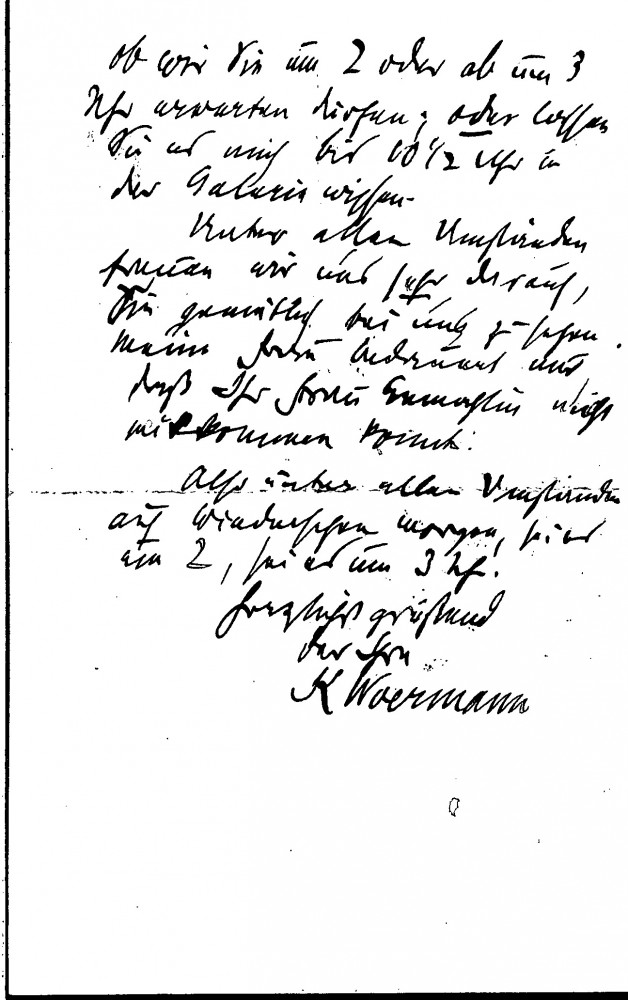 ob wir Sie um 2 oder ob um 3
Uhr erwarten dürfen; oder lassen
Sie es mich bis 10 1/2 Uhr in
der Galerie wissen.
Unter allen Umständen
freuen wir uns sehr darauf,
Sie gemütlich bei uns zu sehen.
Meine Frau bedauert nur
daß Ihr Frau Gemahlin nicht
mitkommen kann.
Also unter allen Umständen
auf Wiedersehen morgen, sei es
um 2, sei es um 3 Uhr.
Herzlichst grüßend
der Ihre
K Woermann